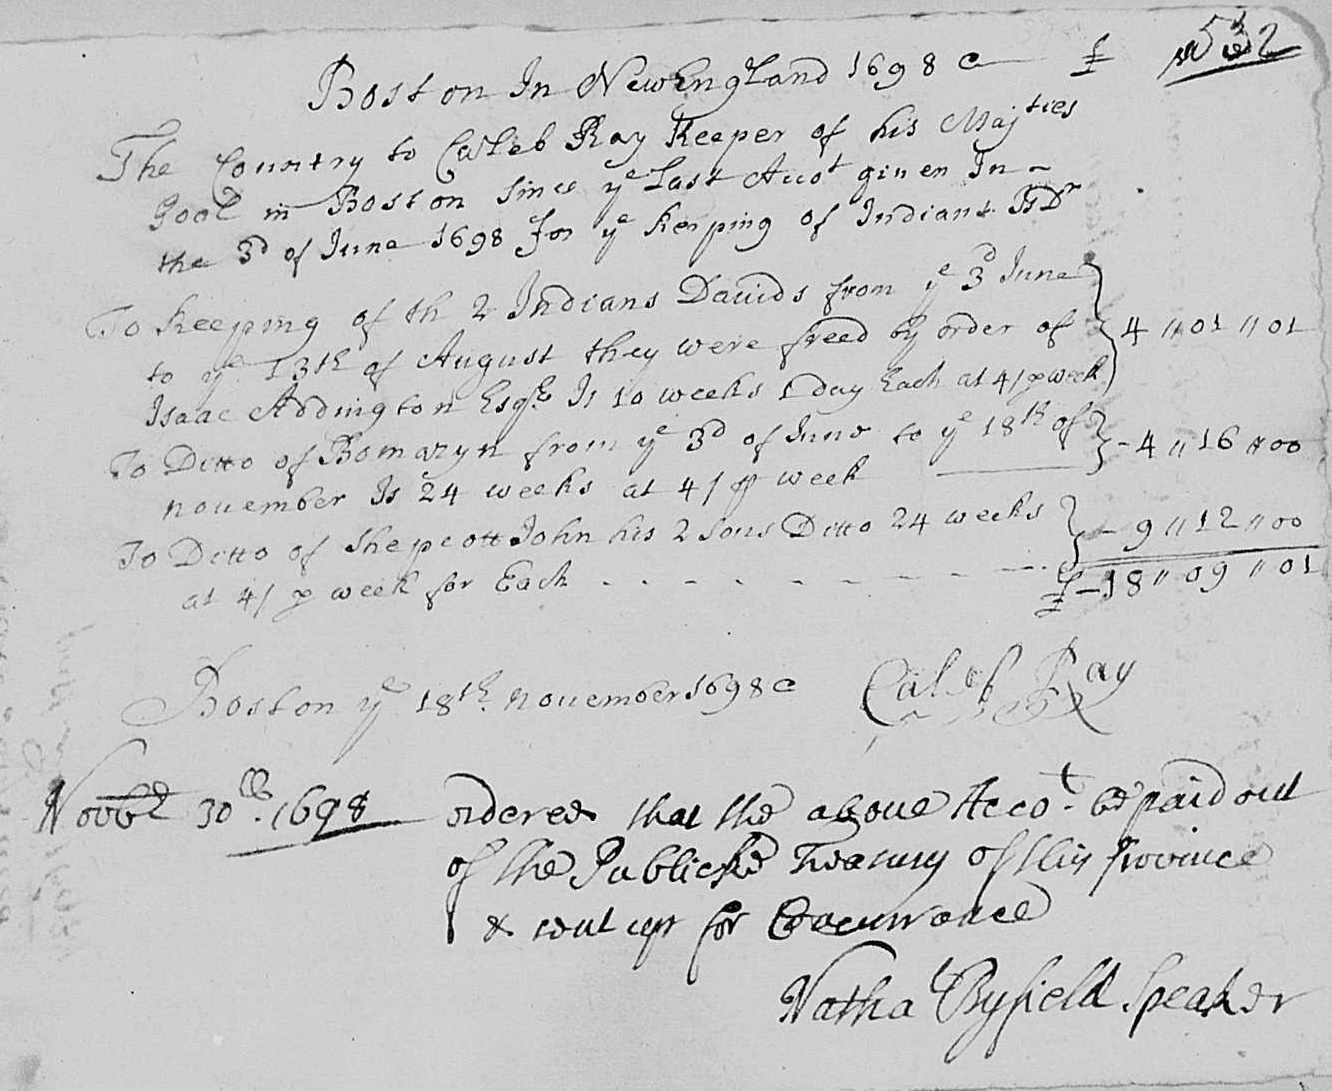 532
Boston In NewEngland 1698 £
The Country to Caleb Ray Keeper of his Majties
Goal in Boston since ye Last Accot given In
the 3d of June 1698 for ye keeping of Indians Dr
To keeping of th 2 Indians Dauids from ye 3d June
to ye 13th of August they were freed by order of
Isaac Addington Esqr Is 10 weeks 1 day Each at 4/ p week 4 " 01 " 01
To Ditto of Bomazyn from ye 3d of June to ye 18th of
nouember Is 24 weeks at 4/ p week - 4 " 16 " 00
To Ditto of Shepcott John his 2 sons Ditto 24 weeks
at 4/ p week for Each - 9 " 12 " 00
£ - 18 " 09 " 01
Boston ye 18th. nouember 1698 Caleb Ray
Novbr 30th. 1698 ordered that the aboue Accot. be paid out
of the Publick Treasury of this Province
& sent up for Concurrance
Natha Byfield Speaker